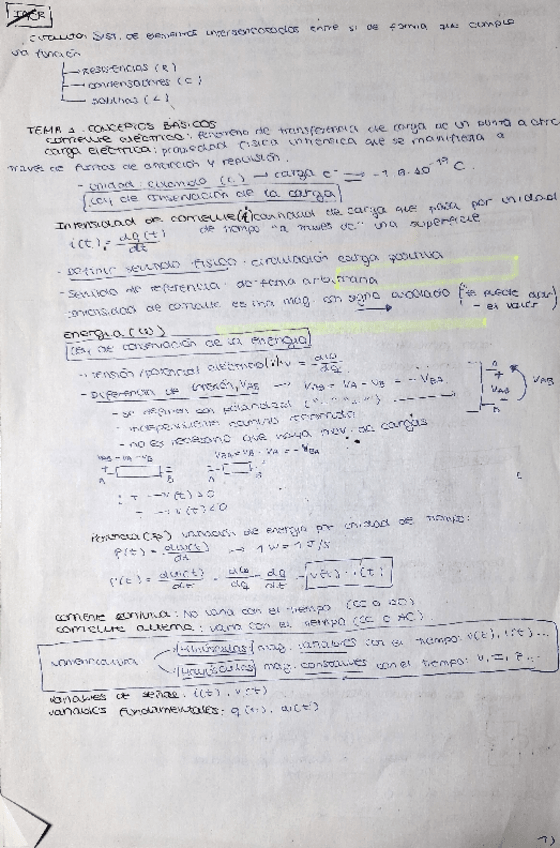 Circuito: sist. de elementos interconectados entre sí de forma que cumple
una función
Resistencias (R)
Condensadores (C)
Bobinas (L)
TEMA 1. CONCEPTOS BÁSICOS
Corriente eléctrica: fenómeno de transferencia de carga de un punto a otro
Carga eléctrica: propiedad física intrínseca que se manifiesta a
través de fuerzas de atracción y repulsión.
- Unidad: culombio (C) → carga e⁻ = -1.6·10⁻¹⁹ C.
Ley de conservación de la carga
Intensidad de corriente (i): cantidad de carga que pasa por unidad
i(t) = dq(t)/dt de tiempo "a través de" una superficie
- Definir sentido físico: circulación carga positiva
- Sentido de referencia: de forma arbitraria
Intensidad de corriente es una mag. con signo asociado
Energía (w)
Ley de conservación de la energía
- Tensión/potencial eléctrico v = dw/dq
- Diferencia de tensión, VAB → VAB = VA - VB = -VBA
- se definen con polaridad
- independiente camino
- no es necesario que haya mov. de cargas
VAB = VA - VB
+ → v(t) > 0
- → v(t) < 0
Potencia (p) variación de energía por unidad de tiempo:
p(t) = dw(t)/dt → 1 W = 1 J/s
p(t) = dw(t)/dt = dw/dq · dq/dt = v(t) · i(t)
Corriente continua: No varía con el tiempo (CC o DC)
Corriente alterna: varía con el tiempo (CC o AC)
Nomenclatura
Minúsculas mag. variables con el tiempo: v(t), i(t)...
Mayúsculas mag. constantes con el tiempo: V, I, P...
Variables de señal: i(t), v(t)
Variables fundamentales: q(t), w(t)